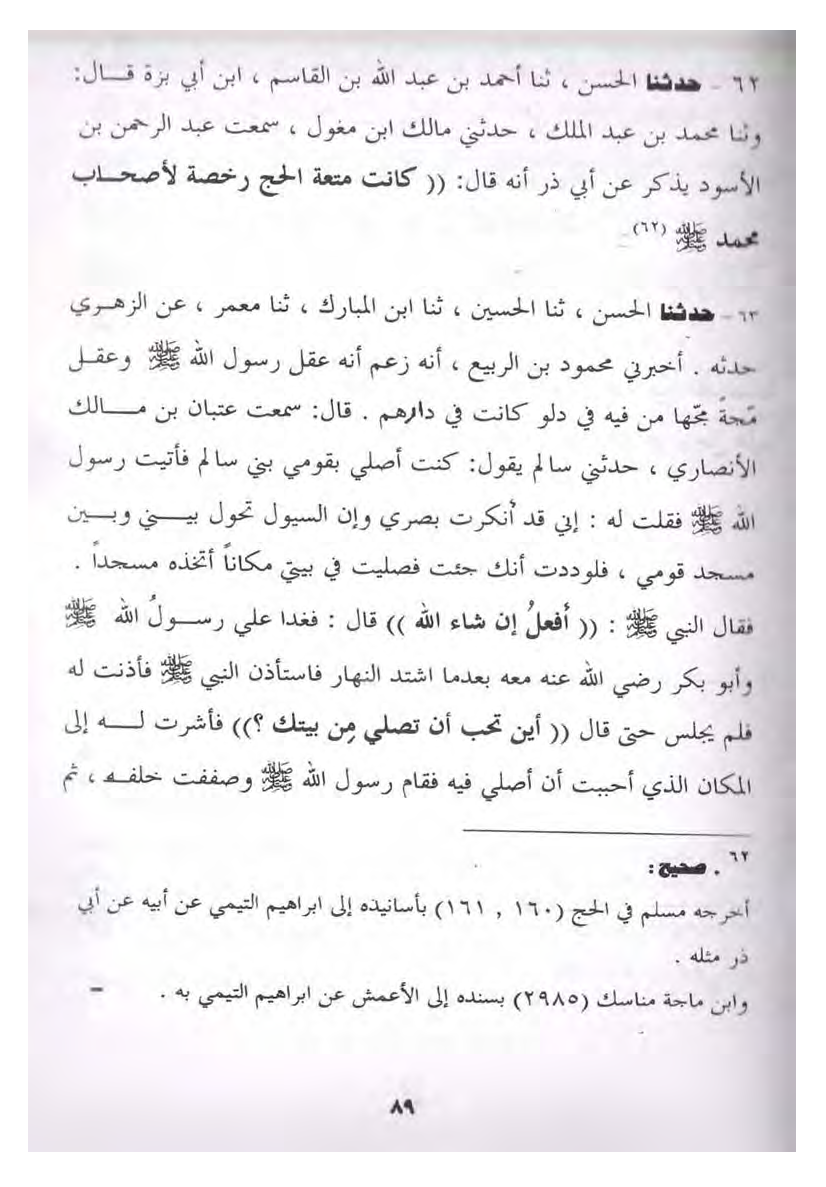 ٦٢ - حدثنا الحسن ، ثنا أحمد بن عبد الله بن القاسم ، ابن أبي بزة قـال:
وثنا محمد بن عبد الملك ، حدثني مالك ابن مغول ، سمعت عبد الرحمن بن
الأسود يذكر عن أبي ذر أنه قال: (( كانت متعة الحج رخصة لأصحـاب
محمد ﷺ (٦٢)
٦٣ - حدثنا الحسن ، ثنا الحسين ، ثنا ابن المبارك ، ثنا معمر ، عن الزهـري
حدثه . أخبرني محمود بن الربيع ، أنه زعم أنه عقل رسول الله ﷺ وعقـل
مّجةً مجّها من فيه في دلو كانت في دارهم . قال: سمعت عتبان بن مـــالك
الأنصاري ، حدثني سالم يقول: كنت أصلي بقومي بني سالم فأتيت رسول
الله ﷺ فقلت له : إني قد أنكرت بصري وإن السيول تحول بيـــني وبـــين
مسجد قومي ، فلوددت أنك جئت فصليت في بيتي مكاناً أتخذه مسجداً .
فقال النبي ﷺ : (( أفعلُ إن شاء الله )) قال : فغدا علي رســولُ الله ﷺ
وأبو بكر رضي الله عنه معه بعدما اشتد النهار فاستأذن النبي ﷺ فأذنت له
فلم يجلس حتى قال (( أين تحب أن تصلي مِن بيتك ؟)) فأشرت لـــه إلى
المكان الذي أحببت أن أصلي فيه فقام رسول الله ﷺ وصففت خلفـه ، ثم
٦٢ . صحيح :
أخرجه مسلم في الحج (١٦٠ , ١٦١) بأسانيذه إلى ابراهيم التيمي عن أبيه عن أبي
ذر مثله .
وابن ماجة مناسك (٢٩٨٥) بسنده إلى الأعمش عن ابراهيم التيمي به . =
٨٩